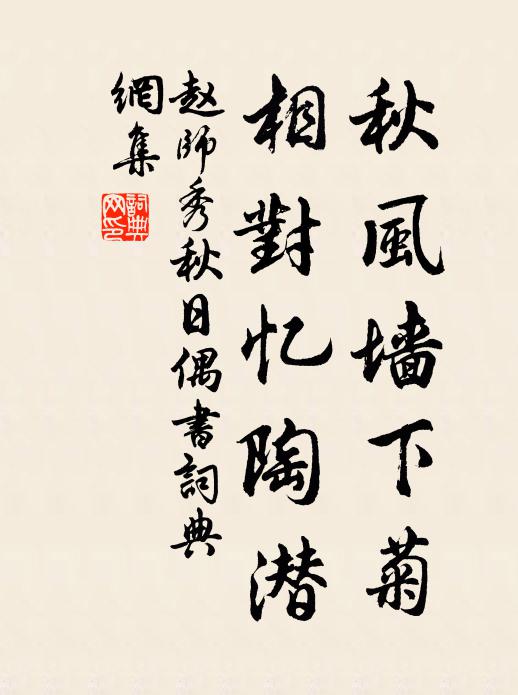 秋風墙下菊
相對忆陶潜
赵師秀秋日偶書詞典
網集
詞典
网印